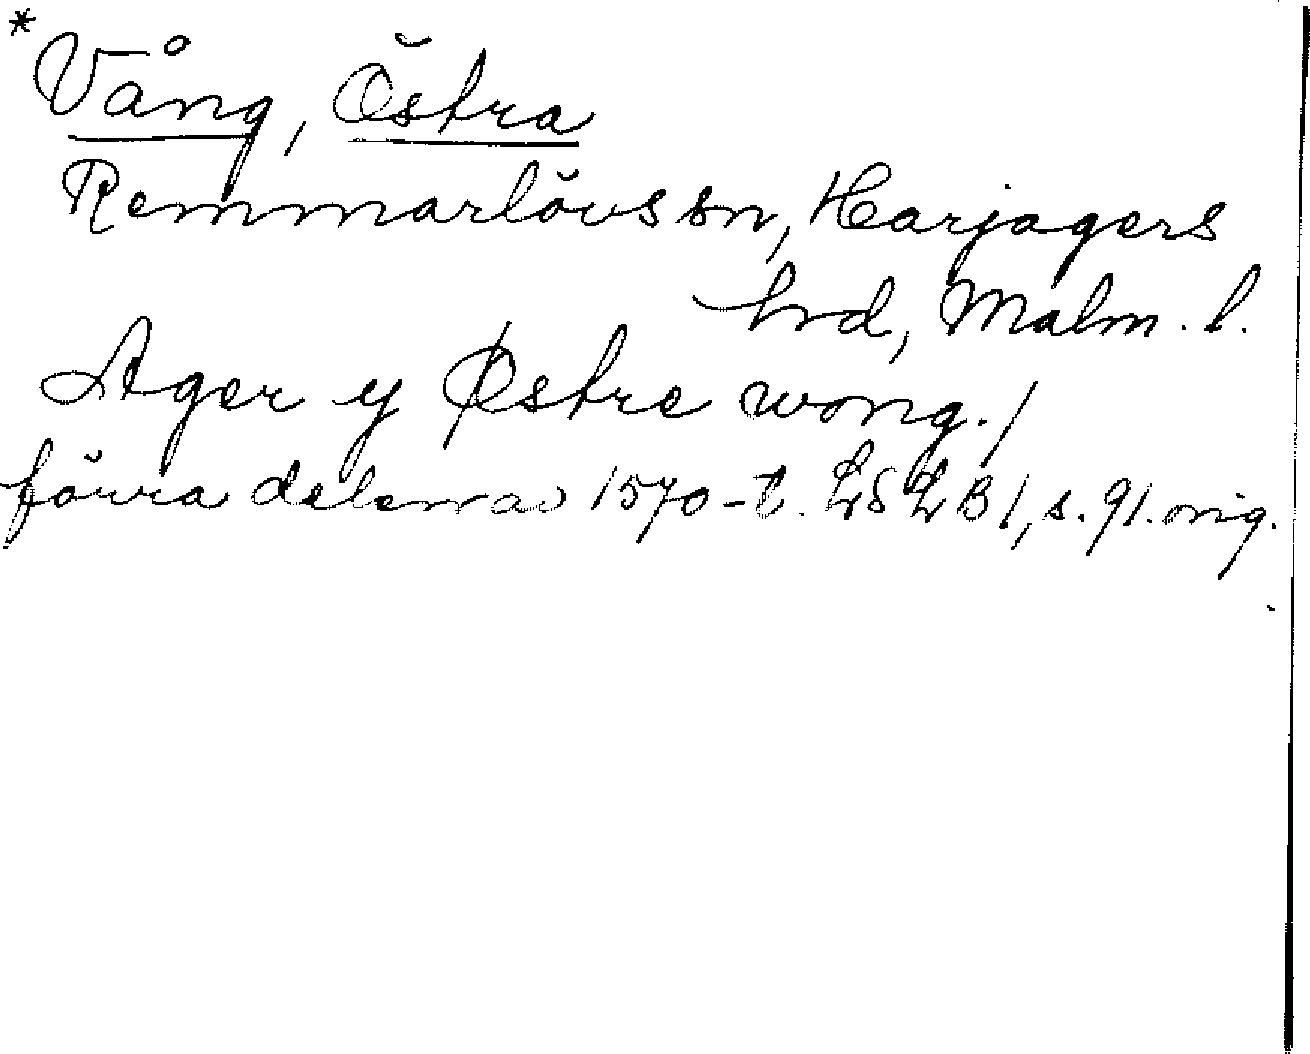 *Vång, Östra
Remmarlövs sn, Harjagers
hrd, Malm. l.
Ager y Østre wong./
förra delen av 1570-t. LSLB1, s. 91. orig.